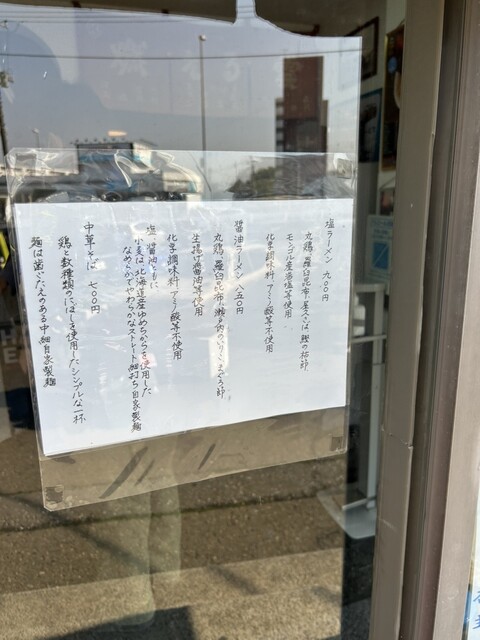 塩ラーメン 九〇〇円
丸鶏、羅臼昆布、屋久さば、鰹の枯節、
モンゴル産岩塩等使用
化学調味料、アミノ酸等不使用
醤油ラーメン 八五〇円
丸鶏、羅臼昆布、瀬戸内のいりこ、まぐろ節、
生揚げ醤油等使用
化学調味料、アミノ酸等不使用
塩、醤油ともに
小麦は、北海道産ゆめちからを使用した
なめらかでやわらかなストレート細打ち自家製麺
中華そば 七〇〇円
鶏と数種類のにぼしを使用したシンプルな一杯
麺は歯ごたえのある中細自家製麺